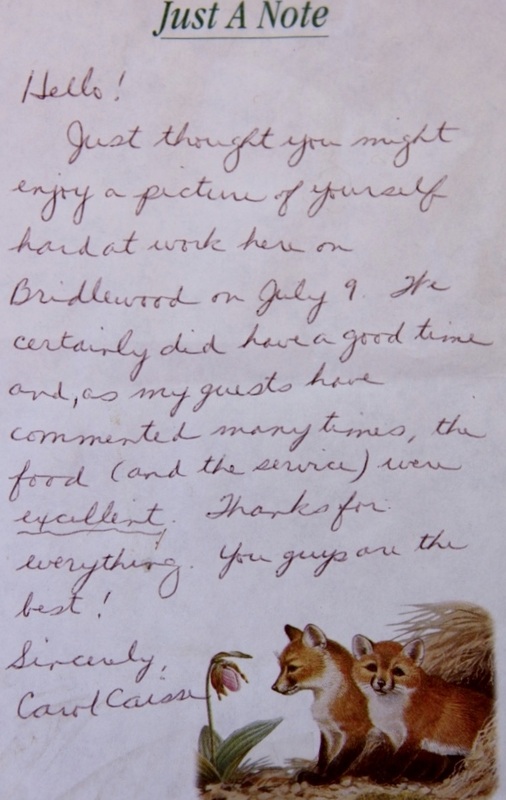 Just A Note
Hello!
Just thought you might
enjoy a picture of yourself
hard at work here on
Bridlewood on July 9. We
certainly did have a good time
and, as my guests have
commented many times, the
food (and the service) were
excellent. Thanks for
everything. You guys are the
best!
Sincerely,
Carol